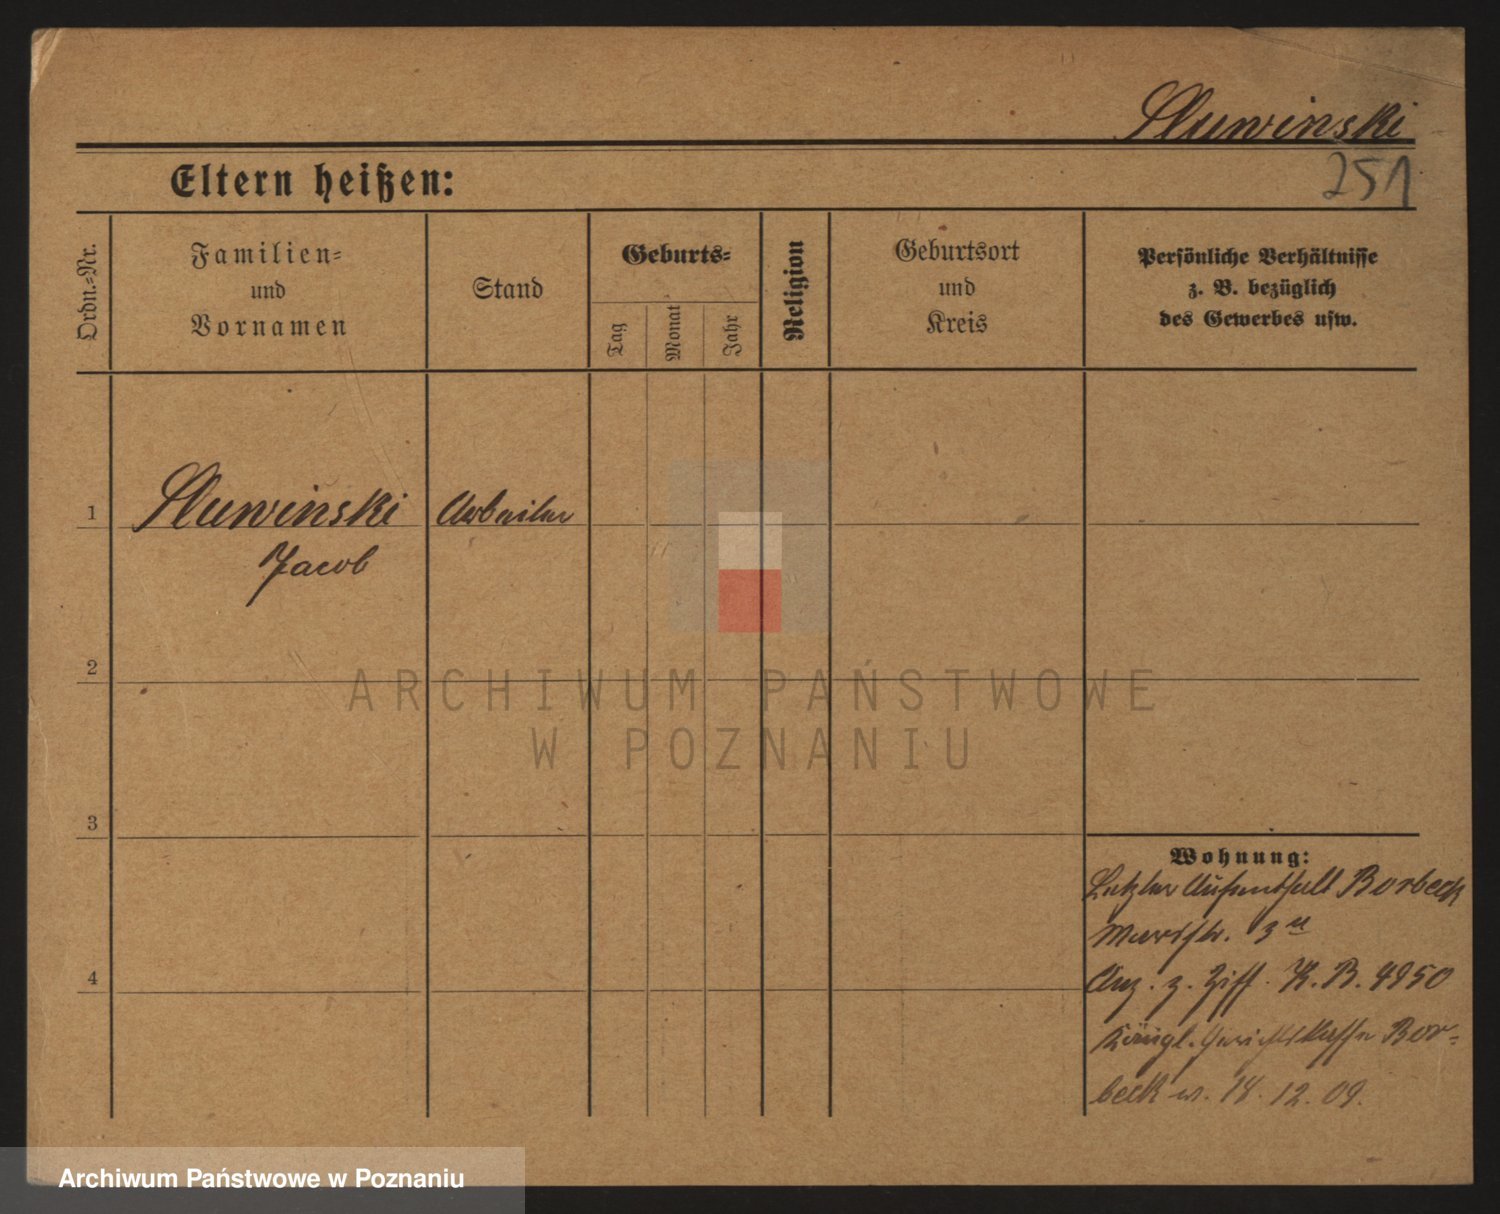 Sluwinski
251
Eltern heißen:
Ordn.-Nr.
Familien-
und
Vornamen
Stand
Geburts-
Tag
Monat
Jahr
Religion
Geburtsort
und
Kreis
Persönliche Verhältnisse
z. B. bezüglich
des Gewerbes usw.
1
Sluwinski
Jacob
Arbeiter
2
ARCHIWUM PAŃSTWOWE
W POZNANIU
3
Wohnung:
Letzter Aufenthalt Borbeck
3
4
Anz. z. Ziff. K. B. 4950
Königl. Gerichtskasse Bor-
beck v. 18. 12. 09.
Archiwum Państwowe w Poznaniu